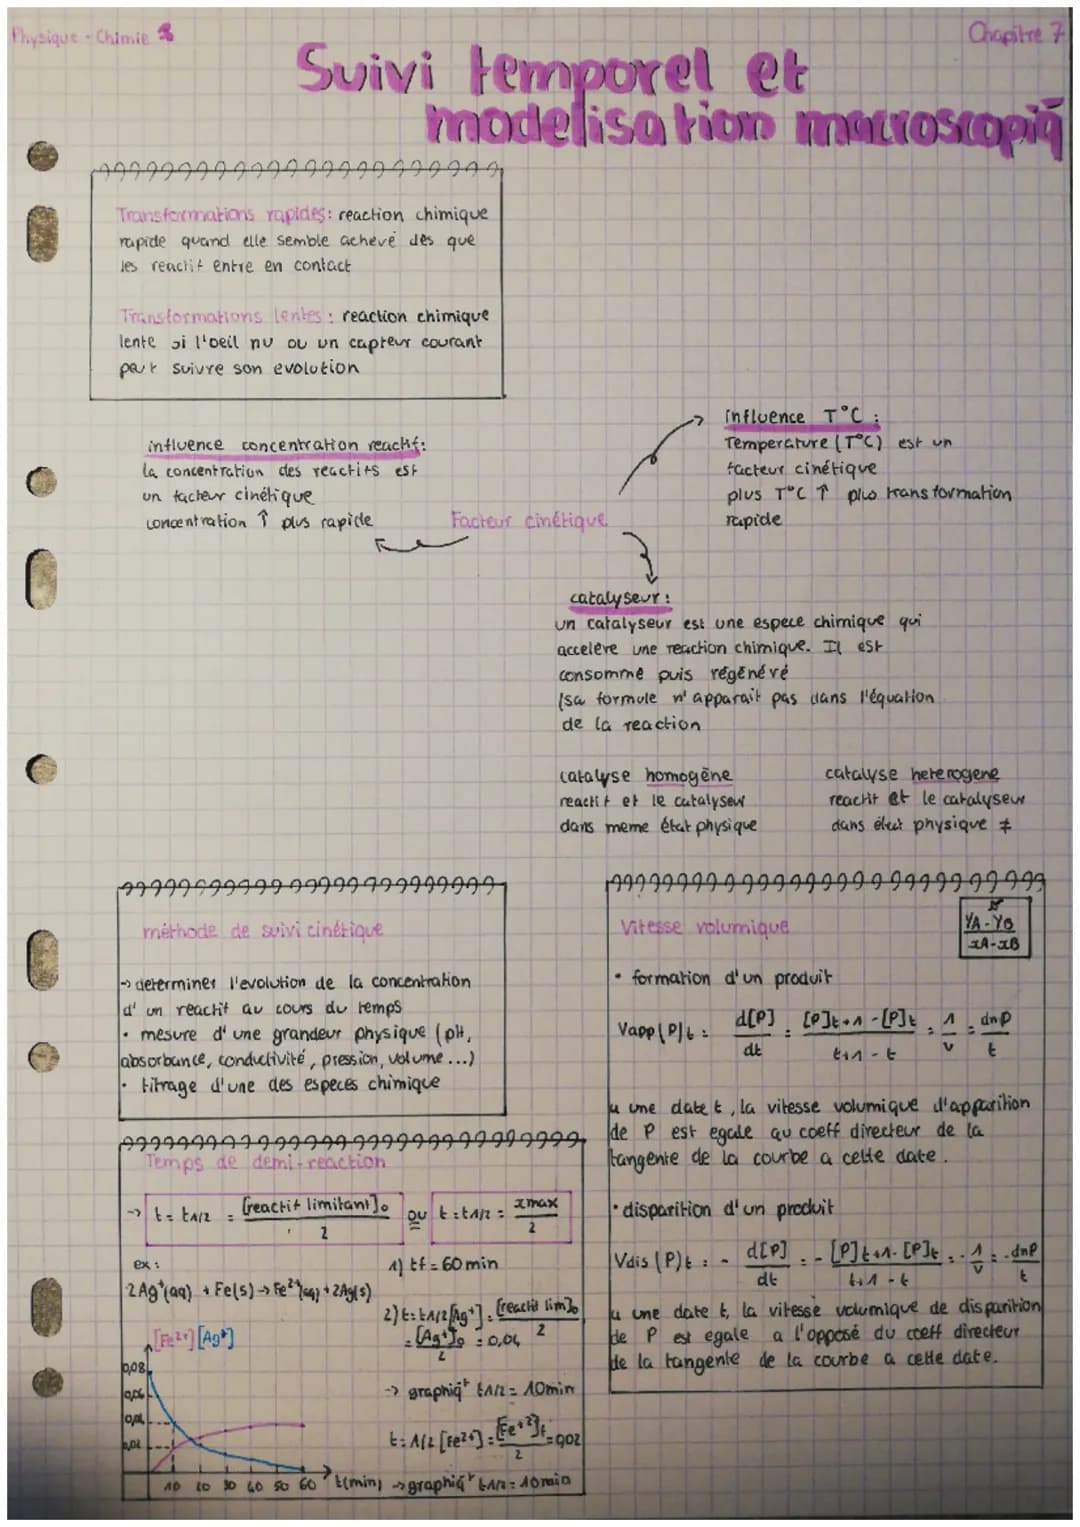 Physique - Chimie
Chapitre 7
Suivi temporel et
modelisation macroscopiq
Transformations rapides: reaction chimique
rapide quand elle semble achevé des que
les reactif entre en contact
Transformations lentes: reaction chimique
lente si l'oeil nu ou un capteur courant
peut suivre son evolution
influence concentration reactif:
la concentration des reactifs est
un facteur cinétique
concentration ↑ plus rapide
Facteur cinétique
influence T°C :
Temperature (T°C) est un
facteur cinétique
plus T°C ↑ plus transformation
rapide
catalyseur :
un catalyseur est une espece chimique qui
accelère une reaction chimique. Il est
consommé puis régénéré
(sa formule n'apparait pas dans l'équation
de la reaction
catalyse homogène
reactif et le catalyseur
dans meme état physique
catalyse heterogene
reactif et le catalyseur
dans état physique ≠
méthode de suivi cinétique
-> determiner l'evolution de la concentration
d'un reactif au cours du temps
• mesure d'une grandeur physique (pH,
absorbance, conductivité, pression, volume...)
• titrage d'une des especes chimique
Temps de demi-reaction
-> t = t1/2 = [reactif limitant]o / 2 ou t = t1/2 = xmax / 2
ex :
2Ag+(aq) + Fe(s) -> Fe2+(aq) + 2Ag(s)
[Fe2+] [Ag+]
0,08
0,06
0,04
0,02
10 20 30 40 50 60 t(min)
1) tf = 60 min
2) t = t1/2 [Ag+] = [reactif lim]o / 2
= [Ag+]o / 2 = 0,04
-> graphiqt t1/2 = 10min
t = 1/2 [Fe2+] = [Fe+2]f / 2 = 0,02
-> graphiqt t1/2 = 10min
Vitesse volumique
YA - YB
xA - xB
• formation d'un produit
Vapp(P)t = d[P] / dt = [P]t+1 - [P]t / t+1 - t = 1 / v = dnp / t
a une date t, la vitesse volumique d'apparition
de P est egale au coeff directeur de la
tangente de la courbe a cette date.
• disparition d'un produit
Vdis (P)t = - d[P] / dt = - [P]t+1 - [P]t / t+1 - t = - 1 / v = - dnP / t
a une date t, la vitesse volumique de disparition
de P est egale a l'opposé du coeff directeur
de la tangente de la courbe a cette date.